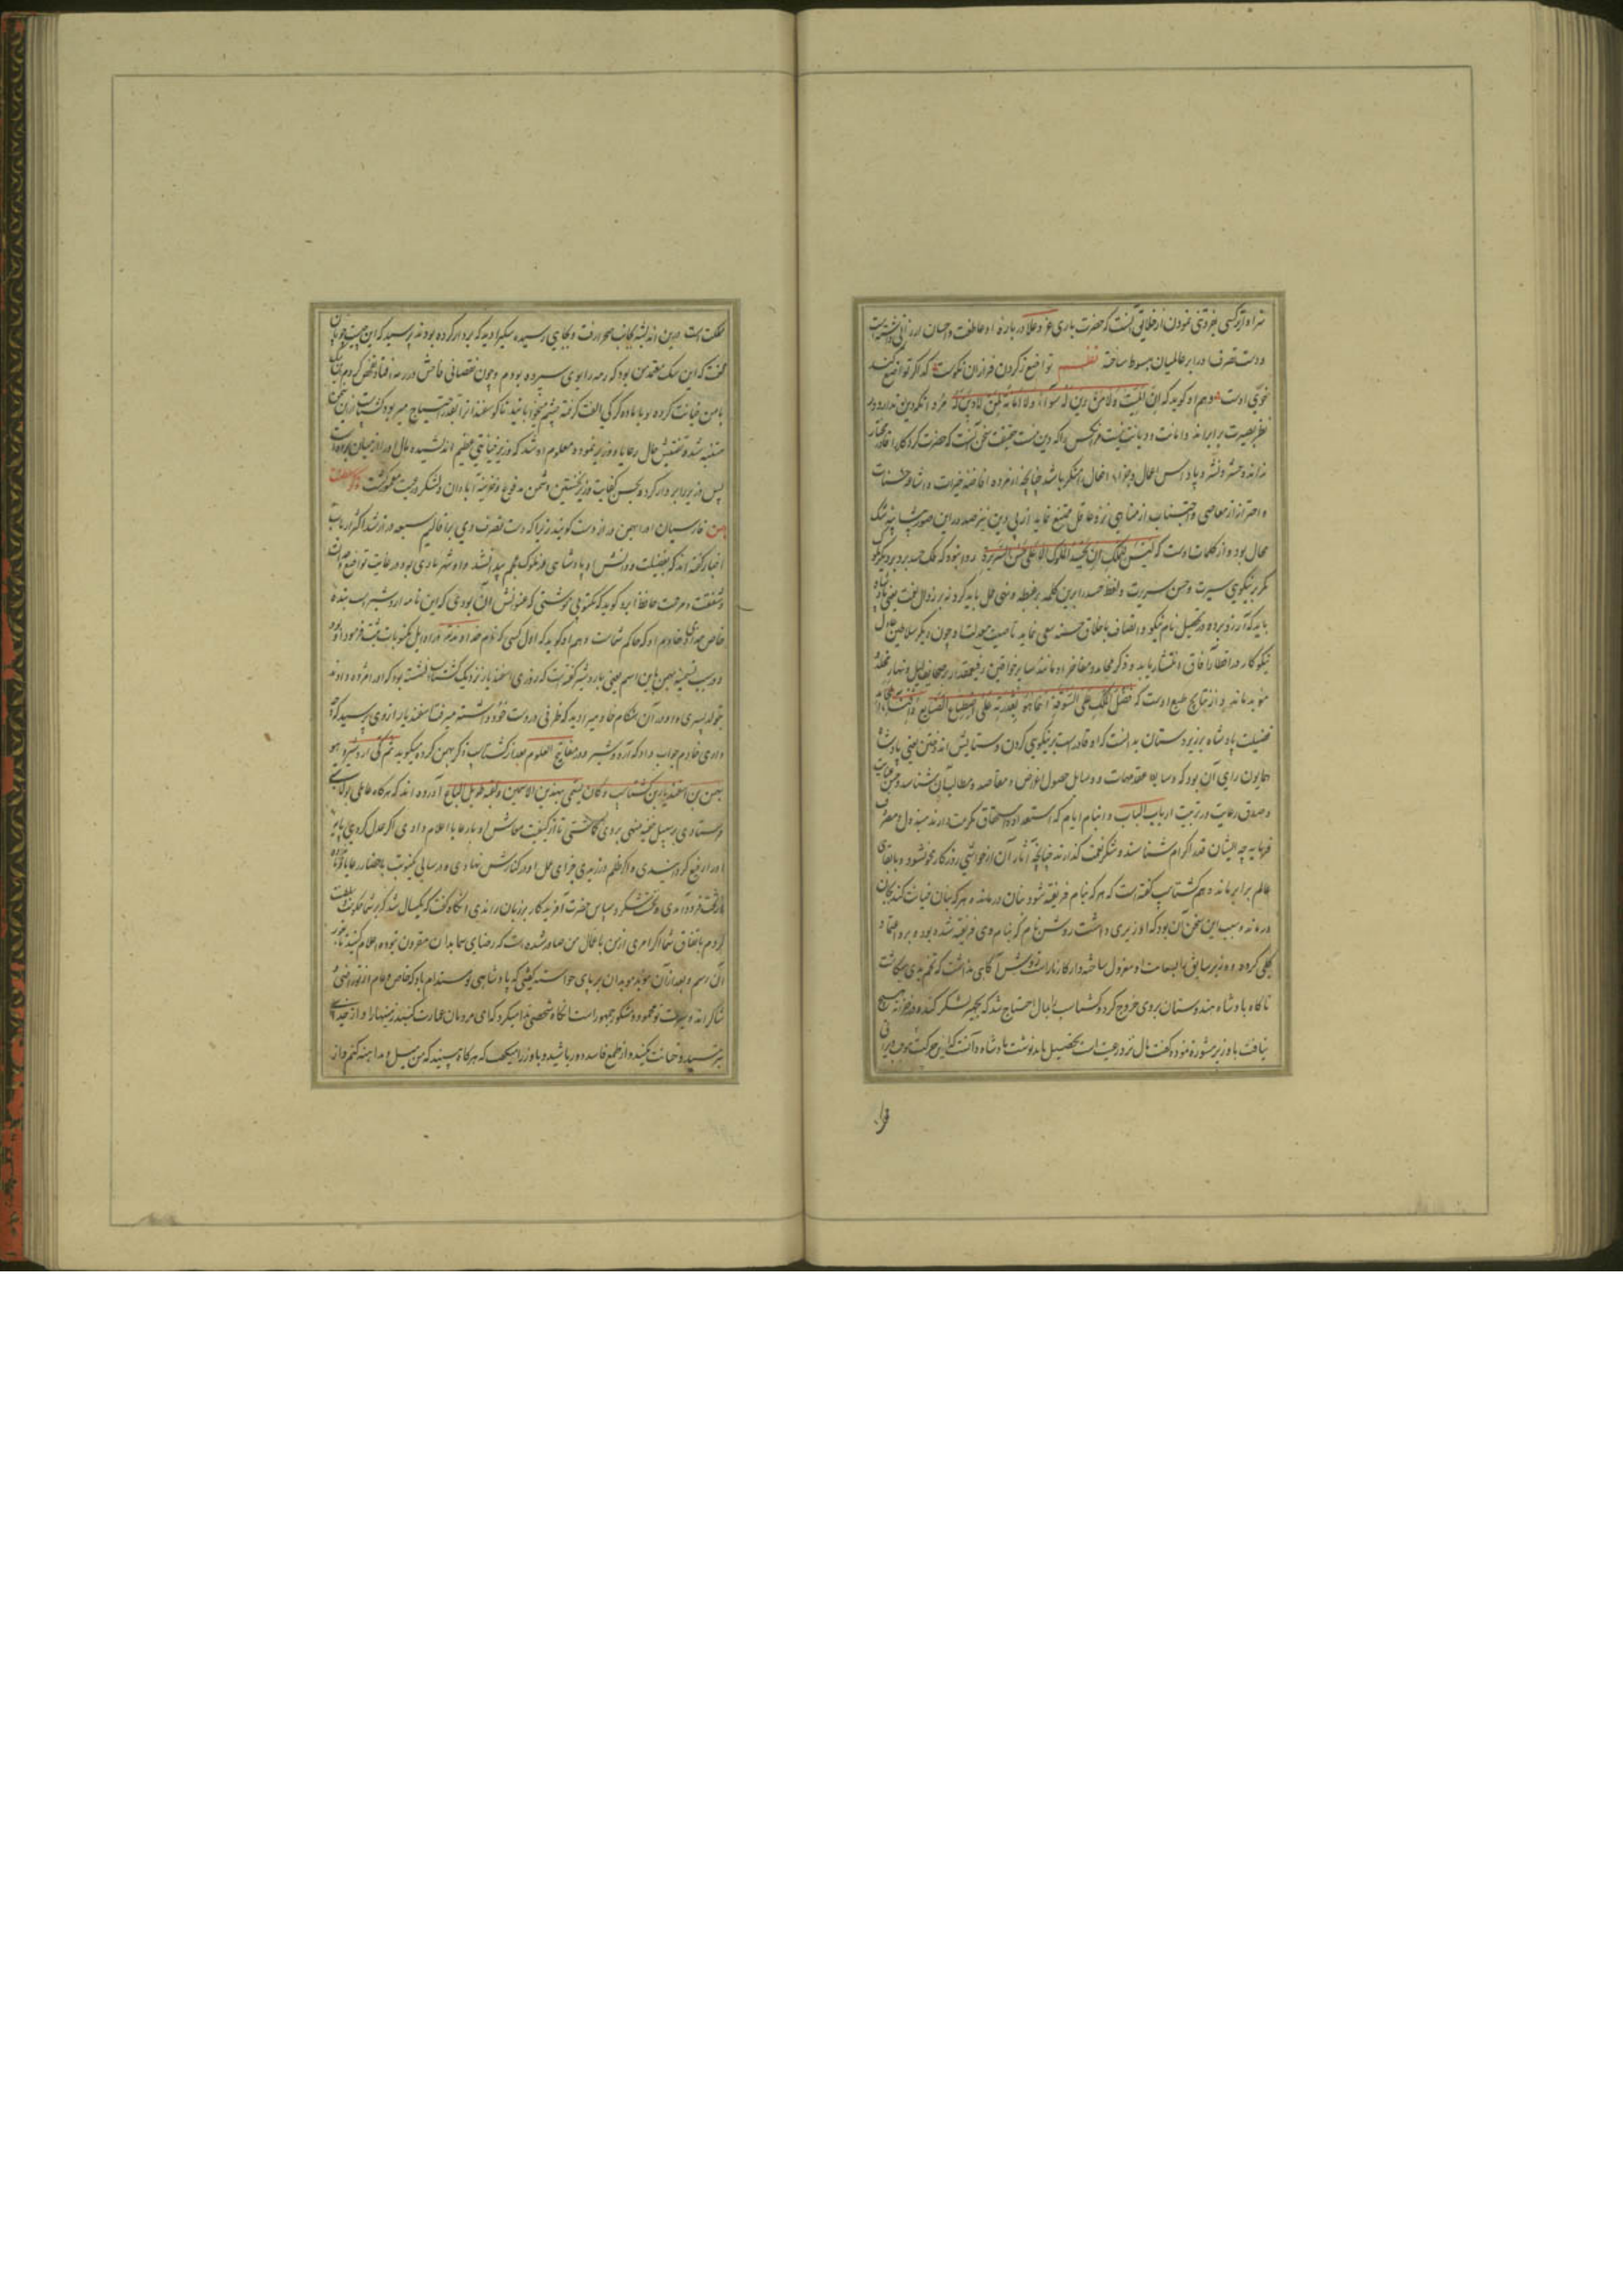 سزاوارترکسی بفروتنی نمودن از خلایق آنست که حضرت باری عز وعلا در بارهٔ او عاطفت و احسان ارزانی داشته است
و دست تصرف او را بر عالمیان مبسوط ساخته نظم تواضع ز گردن فرازان نکوست گدا گر تواضع کند
خوی اوست و هم او گوید که ان المیت و من لا دین له سواء ولا امانة لمن لا دین له مرد
نظر بصیرت برابراند و امانت و دیانت نیست هر کس را که دین نیست حقیقت سخن آنست که حضرت کردگار را
نداند و حشر و نشر و پاداش اعمال و جزاء افعال را منکر باشد چنانچه از مرده افاضه خیرات و اشاعه حسنات
و احتراز از معاصی و اجتناب از مناهی نزد عاقل ممتنع نماید از بی دین نیز صدور این صورتها بی شک
محال بود و از کلمات اوست که لیس للملک ان یحسد الملوک الا علی حسن التدبیر روا نبود که ملک حسد برد بر دیگر ملوک
مگر بر نیکویی سیرت و حسن سریرت و لفظ حسد را برین کلمه بر غبطه و سخن حمل باید کرد نه بر زوال نعمت یعنی پادشاه
باید که آرزو برده در تحصیل نام نیکو و اتصاف باخلاق حسنه سعی نماید تا صیت معدلت او چون دیگر سلاطین عادل
نیکوکار در اقطار آفاق انتشار یابد و ذکر محامد و مفاخر او مانند سایر خواقین رفیع‌مقدار بر صحایف لیل و نهار مخلد
مؤبد ماند و از نتایج طبع اوست که فضل الملک علی السوقة انما هو بقدرته علی اصطناع الصنایع
فضیلت پادشاه بر زیردستان بدانست که او قادر است بر نیکویی کردن و ستایش اندوختن یعنی پادشاه
همایون رای آن بود که وسایط مقدمات و وسایل حصول اغراض و مقاصد و مطالب آن شناسد و حسن عنایت
و صدق رعایت در تربیت ارباب الباب و ایتام ایام که استعداد و استحقاق مکرمت دارند مبذول و مصروف
فرماید چه ایشان قدر اکرام شناسند و شکر نعمت گذارند چنانچه آثار آن از حواشی روزگار محو نشود و بابقای
عالم برابر ماند و هم گشتاسب گفته است که هر که بنام فریفته شود بنان درماند و هر که بنان خیانت کند بجان
درماند و سبب این سخن آن بود که او وزیری داشت روشن نام که بنام وی فریفته شده بود و برو اعتماد
کلی کرده و وزیر سابق را بسعایت او معزول ساخته و از کار ناراست روشن آگاهی نداشت که تخم بدی میکاشت
ناگاه پادشاه هندوستان بروی خروج کرد و گشتاسب را بمال احتیاج شد که تجهیز لشکر کند و در خزانه هیچ
نیافت با وزیر مشورة نموده گفت مال نزد رعیت است بتحصیل باید نوشت پادشاه دانست که این حرکت موجب ویرانی
مملکت است درین اندیشه بجانب صحرا رفت و بجایی رسیده سگی را دید که بردار کرده بودند پرسید که این چیست چوپان
گفت که این سگ معتمد من بود که رمه را بوی سپرده بودم و چون نقصانی فاحش در رمه افتاد تفحص کردم
با من خیانت کرده او با ماده گرگی الفت گرفته چشم میخوابانید تا گوسفندان را بقدر احتیاج میربود گشتاسب ازین سخن
متنبه شده تفتیش حال رعایا و وزیر نموده معلوم او شد که وزیر خیانتی عظیم اندیشیده
پس وزیر را بر دار کرده بحسن کفایت وزیر نخستین دشمن مدفوع و خزینه آبادان و لشکر و رعیت معمور گشت ذکر سلطنت
بهمن فارسیان او را بهمن دراز دست گویند زیرا که دست تصرف وی بر اقالیم سبعه دراز شد اکثر ارباب
اخبار گفته‌اند که بفضیلت و دانش او پادشاهی از ملوک عجم پیدا نشد و او شهریاری بود در غایت تواضع
و شفقت و مرحمت حافظ ابرو گوید که مکتوبی نوشتی که عنوانش این بودی که این نامه اردشیر است بندهٔ
خاص خدای و خادم او که حاکم شماست و هم او گوید که اول کسی که نام خداوند در اوایل مکتوبات ثبت فرمود او بود
و در سبب تسمیه بهمن باین اسم یعنی باردشیر گفته‌است که روزی اسفندیار نزدیک گشتاسب نشسته بود که او را مژده دادند
بتولد پسری و او در آن هنگام خادمی را دید که ظرفی در دست خود داشته میرفت اسفندیار از وی پرسید که چه
داری خادم جواب داد که آرد و شیر و در مفاتیح العلوم بعد از گشتاسب ذکر بهمن کرده میگوید ثم کی اردشیر و هو
بهمن بن اسفندیار بن گشتاسب و کان یسمی بهذین الاسمین و لقبه طویل الباع آورده‌اند که هر گاه عاملی بولایتی
فرستادی بر سبیل خفیه منهی بروی گماشتی تا از کیفیت معاش او با رعایا اعلام دادی اگر عدل کردی پایهٔ
او را رفیع گردانیدی و اگر ظلم ورزیدی جزای عمل او در کنارش نهادی و در سالی یکنوبت باحضار رعایا فرموده
از تخت فرود آمدی و نخست شکر و سپاس حضرت آفریدگار بر زبان راندی آنگاه گفت که یکسال شد که بر شما حکومت
کردم باتفاق شما اگر امری ازمن یا عمال من صادر شده است که رضای شما بدان مقرون نبوده اعلام کنید تا
آن رسم و بعد از آن مؤبد موبدان بر پای خواسته گفتی که پادشاهی تو مستدام باد که خاص و عام از تو راضی و
شاکراند و سیرت تو محمود و مشکور جمهور است آنگاه شخصی ندا میکرد که ای مردمان عمارت کنید زمینها را و از خدای
بترسید و خیانت نکنید و از طمع فاسد دور باشید و با وزرا میگفت که هر گاه ببینید که من میل و مداهنه کنم